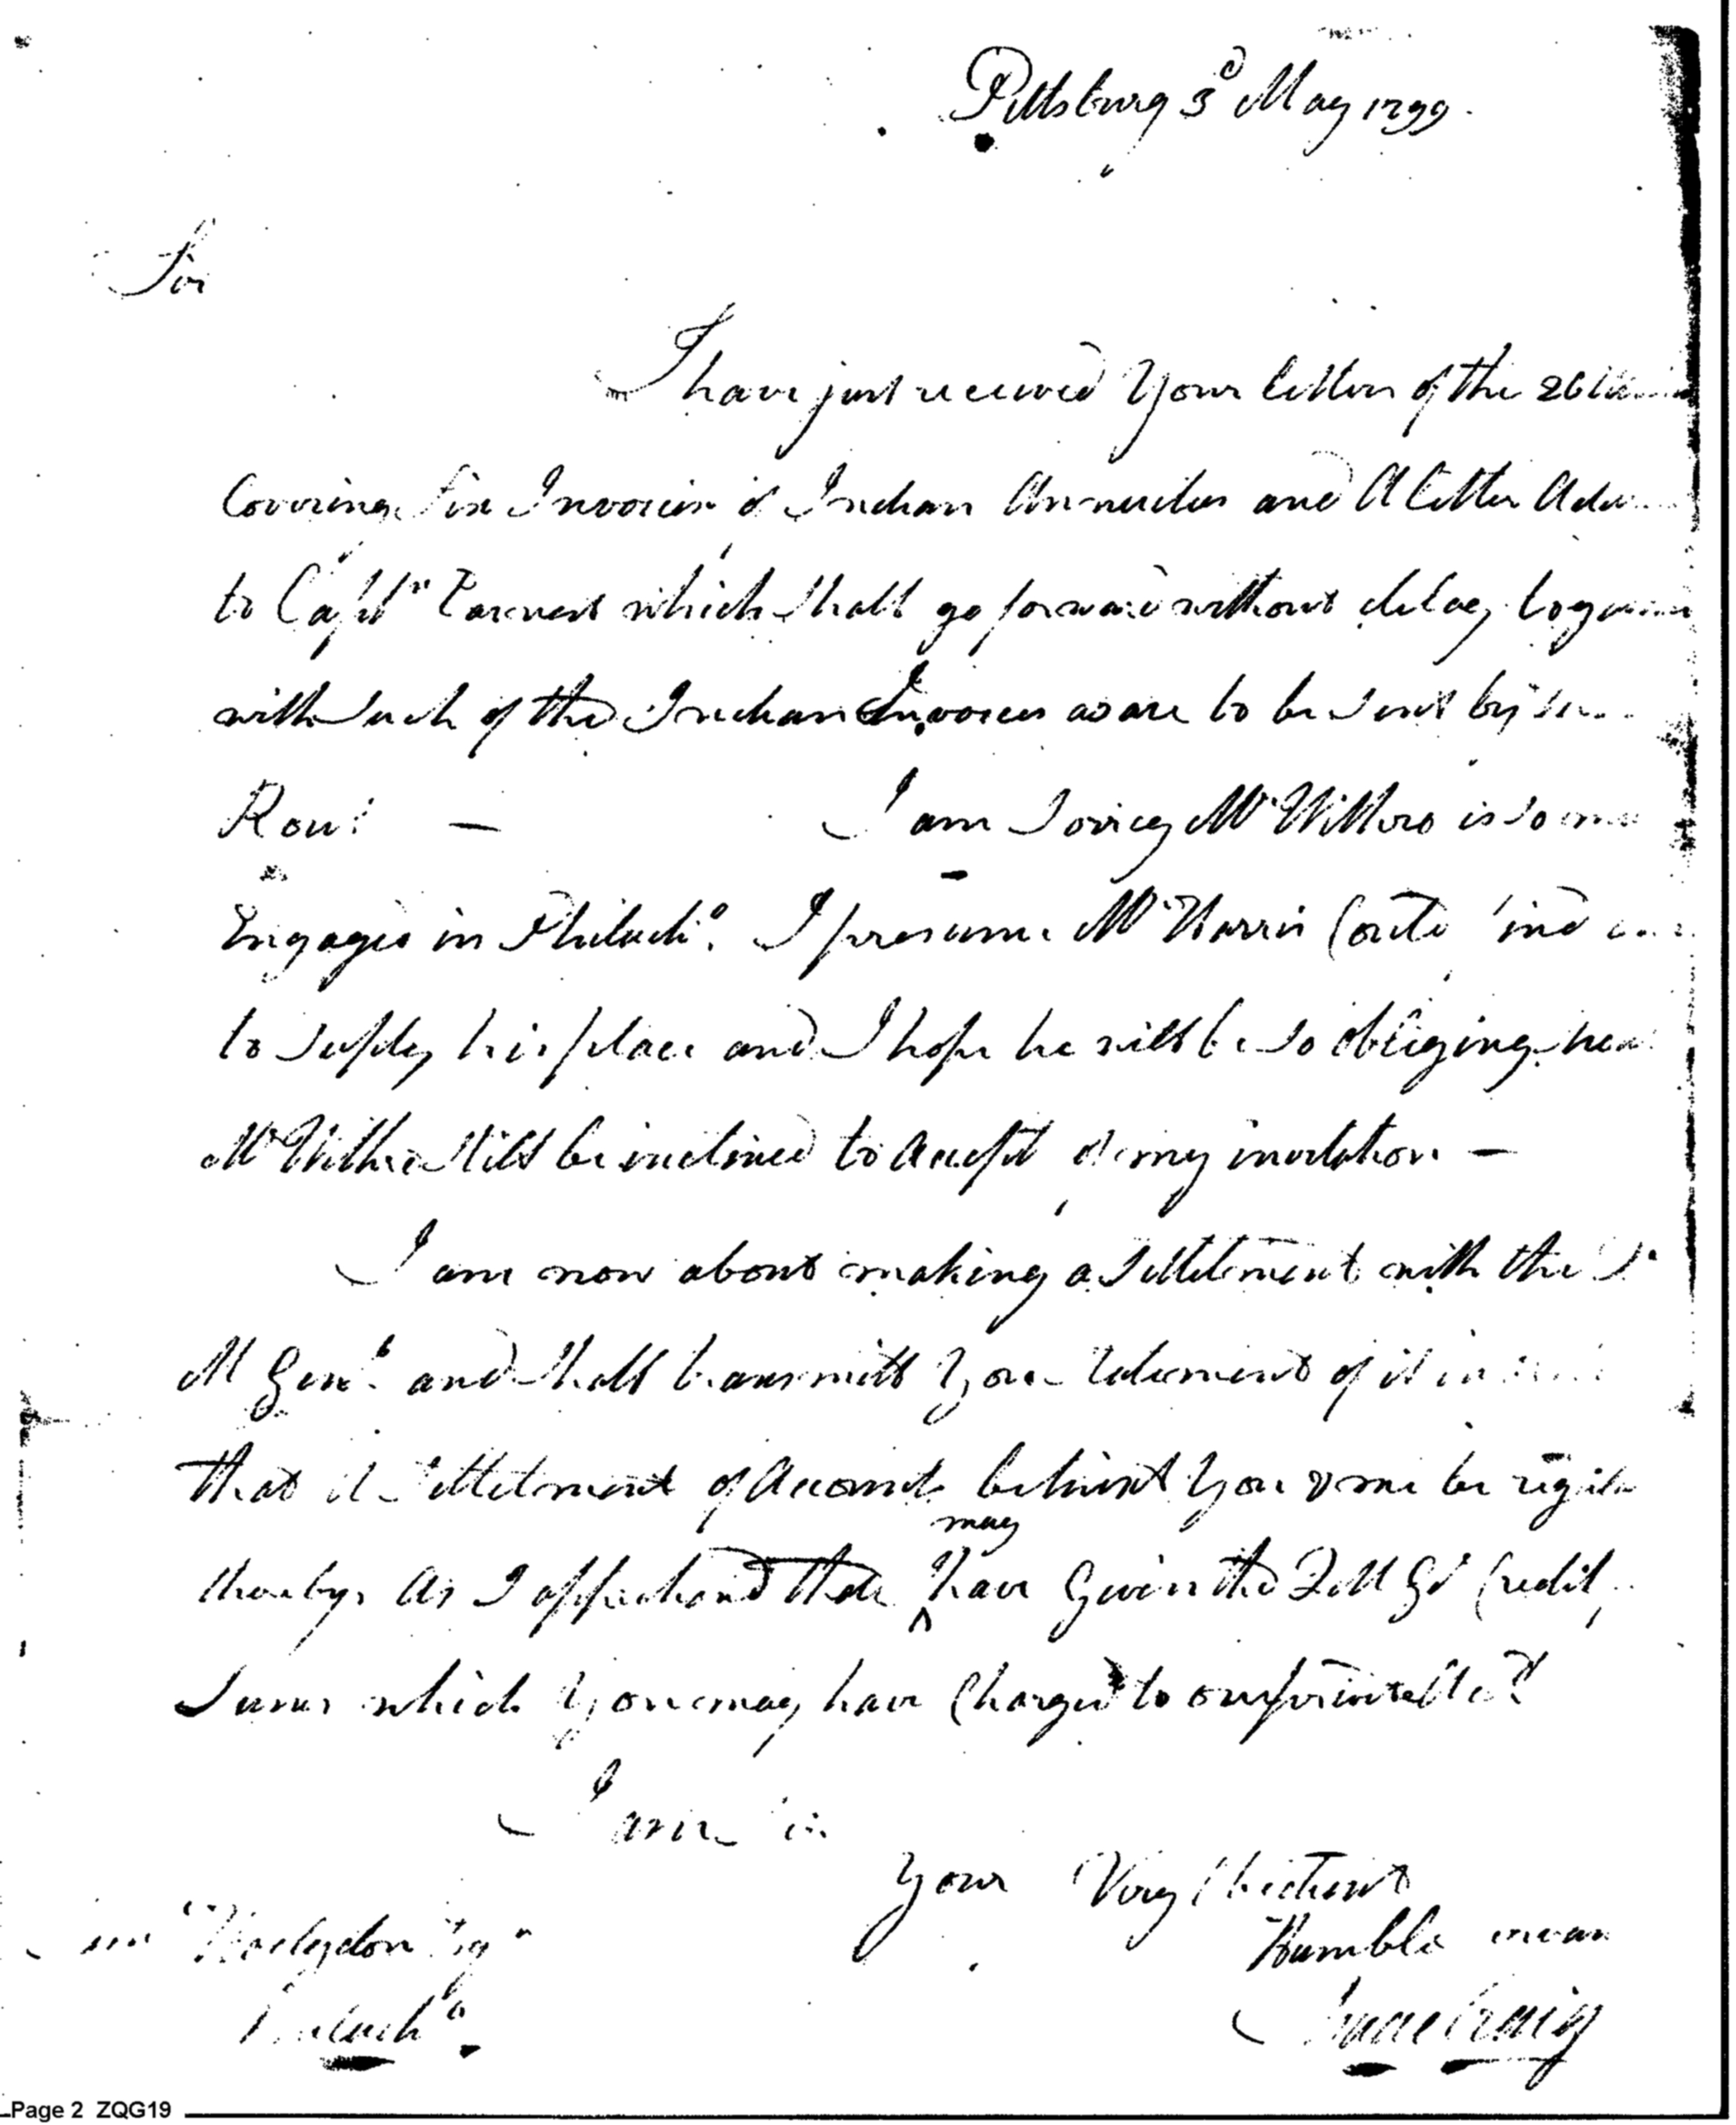 Pittsburg 3d May 1799.
Sir
I have just received Your letter of the 26th
Covering Six Invoices of Indian Annuities and A letter
to Captn which Shall go forward without delay
with Such of the Indian Invoices as are to be Sent by
I am Sorry Mr Wilkins is So
Engaged in Philada. I presume Mr Harris
to Supply his place and I hope he will be So obliging
Mr Wilkins Still be inclined to Accept of my invitation —
I am now about making a Settlement with the
M Genl. and Shall transmitt You Statement of it in
that Settlement of Accounts between You & me be
thereby. As I apprehend there may have Given the QMGl Credit
Sums which You may have Charged to our private
I am Sir
Your Very Obedient
Hodgdon Esqr
Humble
Philada.
Isaac Craig
Page 2 ZQG19